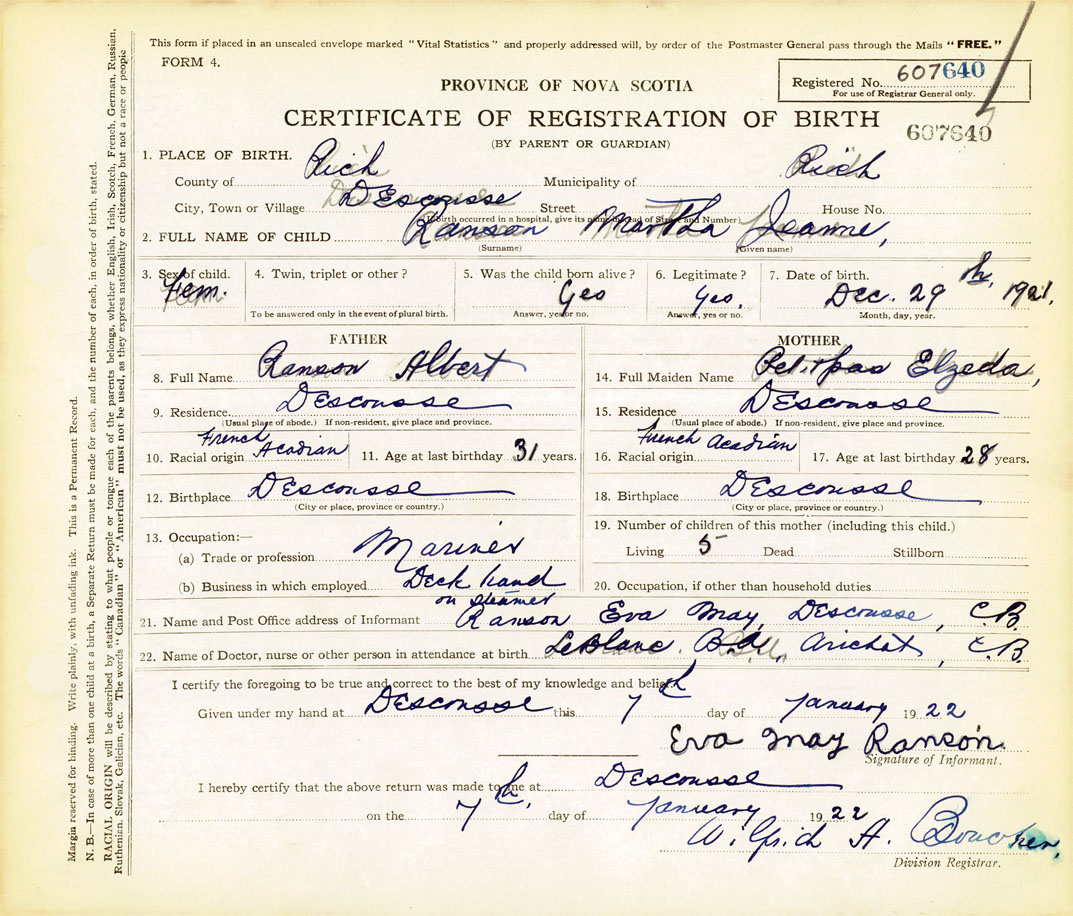 This form if placed in an unsealed envelope marked "Vital Statistics" and properly addressed will, by order of the Postmaster General pass through the Mails "FREE."
FORM 4.
PROVINCE OF NOVA SCOTIA
Registered No. 607640
For use of Registrar General only.
CERTIFICATE OF REGISTRATION OF BIRTH
607640
(BY PARENT OR GUARDIAN)
1. PLACE OF BIRTH.
County of Rich Municipality of Rich
City, Town or Village DEscousse Street House No.
(If birth occurred in a hospital, give its name instead of Street and Number)
2. FULL NAME OF CHILD Ranson Martha Jeanne,
(Surname) (Given name)
3. Sex of child. 4. Twin, triplet or other? 5. Was the child born alive? 6. Legitimate? 7. Date of birth.
Fem. Yes Yes. Dec. 29th, 1921.
To be answered only in the event of plural birth. Answer, yes or no. Answer, yes or no. Month, day, year.
FATHER MOTHER
8. Full Name Ranson Albert 14. Full Maiden Name Petitpas Elzeda,
9. Residence DEscousse 15. Residence DEscousse
(Usual place of abode.) If non-resident, give place and province. (Usual place of abode.) If non-resident, give place and province.
10. Racial origin French Acadian 11. Age at last birthday 31 years. 16. Racial origin French Acadian 17. Age at last birthday 28 years.
12. Birthplace DEscousse 18. Birthplace DEscousse
(City or place, province or country.) (City or place, province or country.)
13. Occupation:— 19. Number of children of this mother (including this child.)
(a) Trade or profession Mariner Living 5 Dead Stillborn
(b) Business in which employed Deck hand on steamer 20. Occupation, if other than household duties
21. Name and Post Office address of Informant Ranson Eva May, DEscousse, C.B.
22. Name of Doctor, nurse or other person in attendance at birth LeBlanc B.A. Arichat, C.B.
I certify the foregoing to be true and correct to the best of my knowledge and belief.
Given under my hand at DEscousse this 7th day of January 1922
Eva May Ranson.
Signature of Informant.
I hereby certify that the above return was made to me at DEscousse
on the 7th, day of January 1922
Wilfrid A. Boucher,
Division Registrar.
Margin reserved for binding. Write plainly, with unfading ink. This is a Permanent Record.
N. B.—In case of more than one child at a birth, a Separate Return must be made for each, and the number of each, in order of birth, stated.
RACIAL ORIGIN will be described by stating to what people or tongue each of the parents belongs, whether English, Irish, Scotch, French, German, Russian,
Ruthenian, Slovak, Galician, etc. The words "Canadian" or "American" must not be used, as they express nationality or citizenship but not a race or people